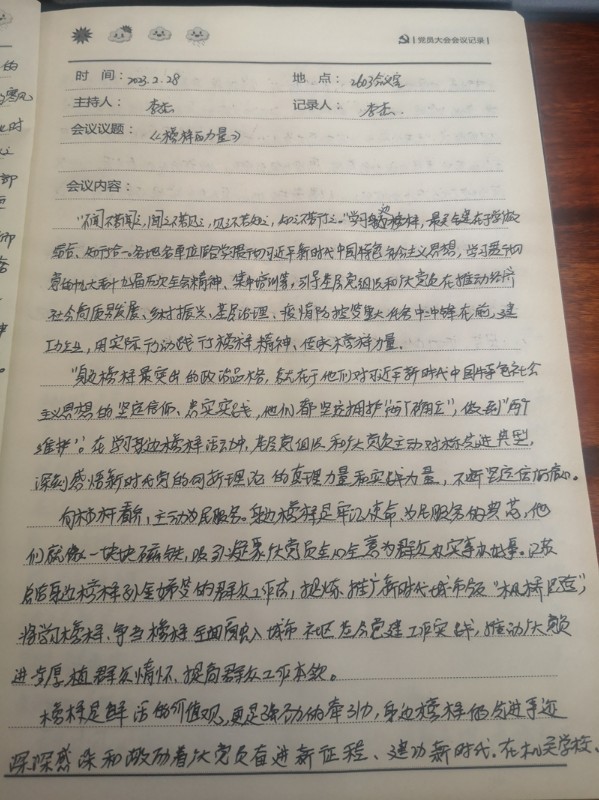 党员大会会议记录
时 间：2023.2.28 地 点：2603会议室
主持人：李杰 记录人：李杰.
会议议题：《榜样的力量》
会议内容：
“不闻不若闻之,闻之不若见之,见之不若知之,知之不若行之。”学习身边榜样,最关键在于学做
结合、知行合一。各地各单位结合学习贯彻习近平新时代中国特色社会主义思想,学习贯彻
党的十九大和十九届历次全会精神、集中培训等,引导基层党组织和广大党员在推动经济
社会高质量发展、乡村振兴、基层治理、疫情防控等重大任务中冲锋在前、建
功立业,用实际行动践行榜样精神、传承榜样力量.
“身边榜样最突出的政治品格,就在于他们对习近平新时代中国特色社会
主义思想的坚定信仰、忠实实践,他们都坚定拥护“两个确立”,做到“两个
维护”。在学习身边榜样活动中,基层党组织和广大党员主动对标先进典型,
深刻感悟新时代党的创新理论的真理力量和实践力量,不断坚定信仰信心。
向榜样看齐,主动为民服务。身边榜样是牢记使命、为民服务的典范,他
们就像一块块磁铁,吸引凝聚广大党员全心全意为群众办实事办好事。
总结身边榜样的群众工作法,提炼、推广新时代城市版“枫桥经验”,
将学习榜样、争当榜样全面融入城市社区基层党建工作实践,推动广大党员
进一步厚植群众情怀、提高群众工作本领。
榜样是鲜活的价值观,更是强劲的牵引力,身边榜样的先进事迹
深深感染和激励着广大党员奋进新征程、建功新时代.在机关学校、